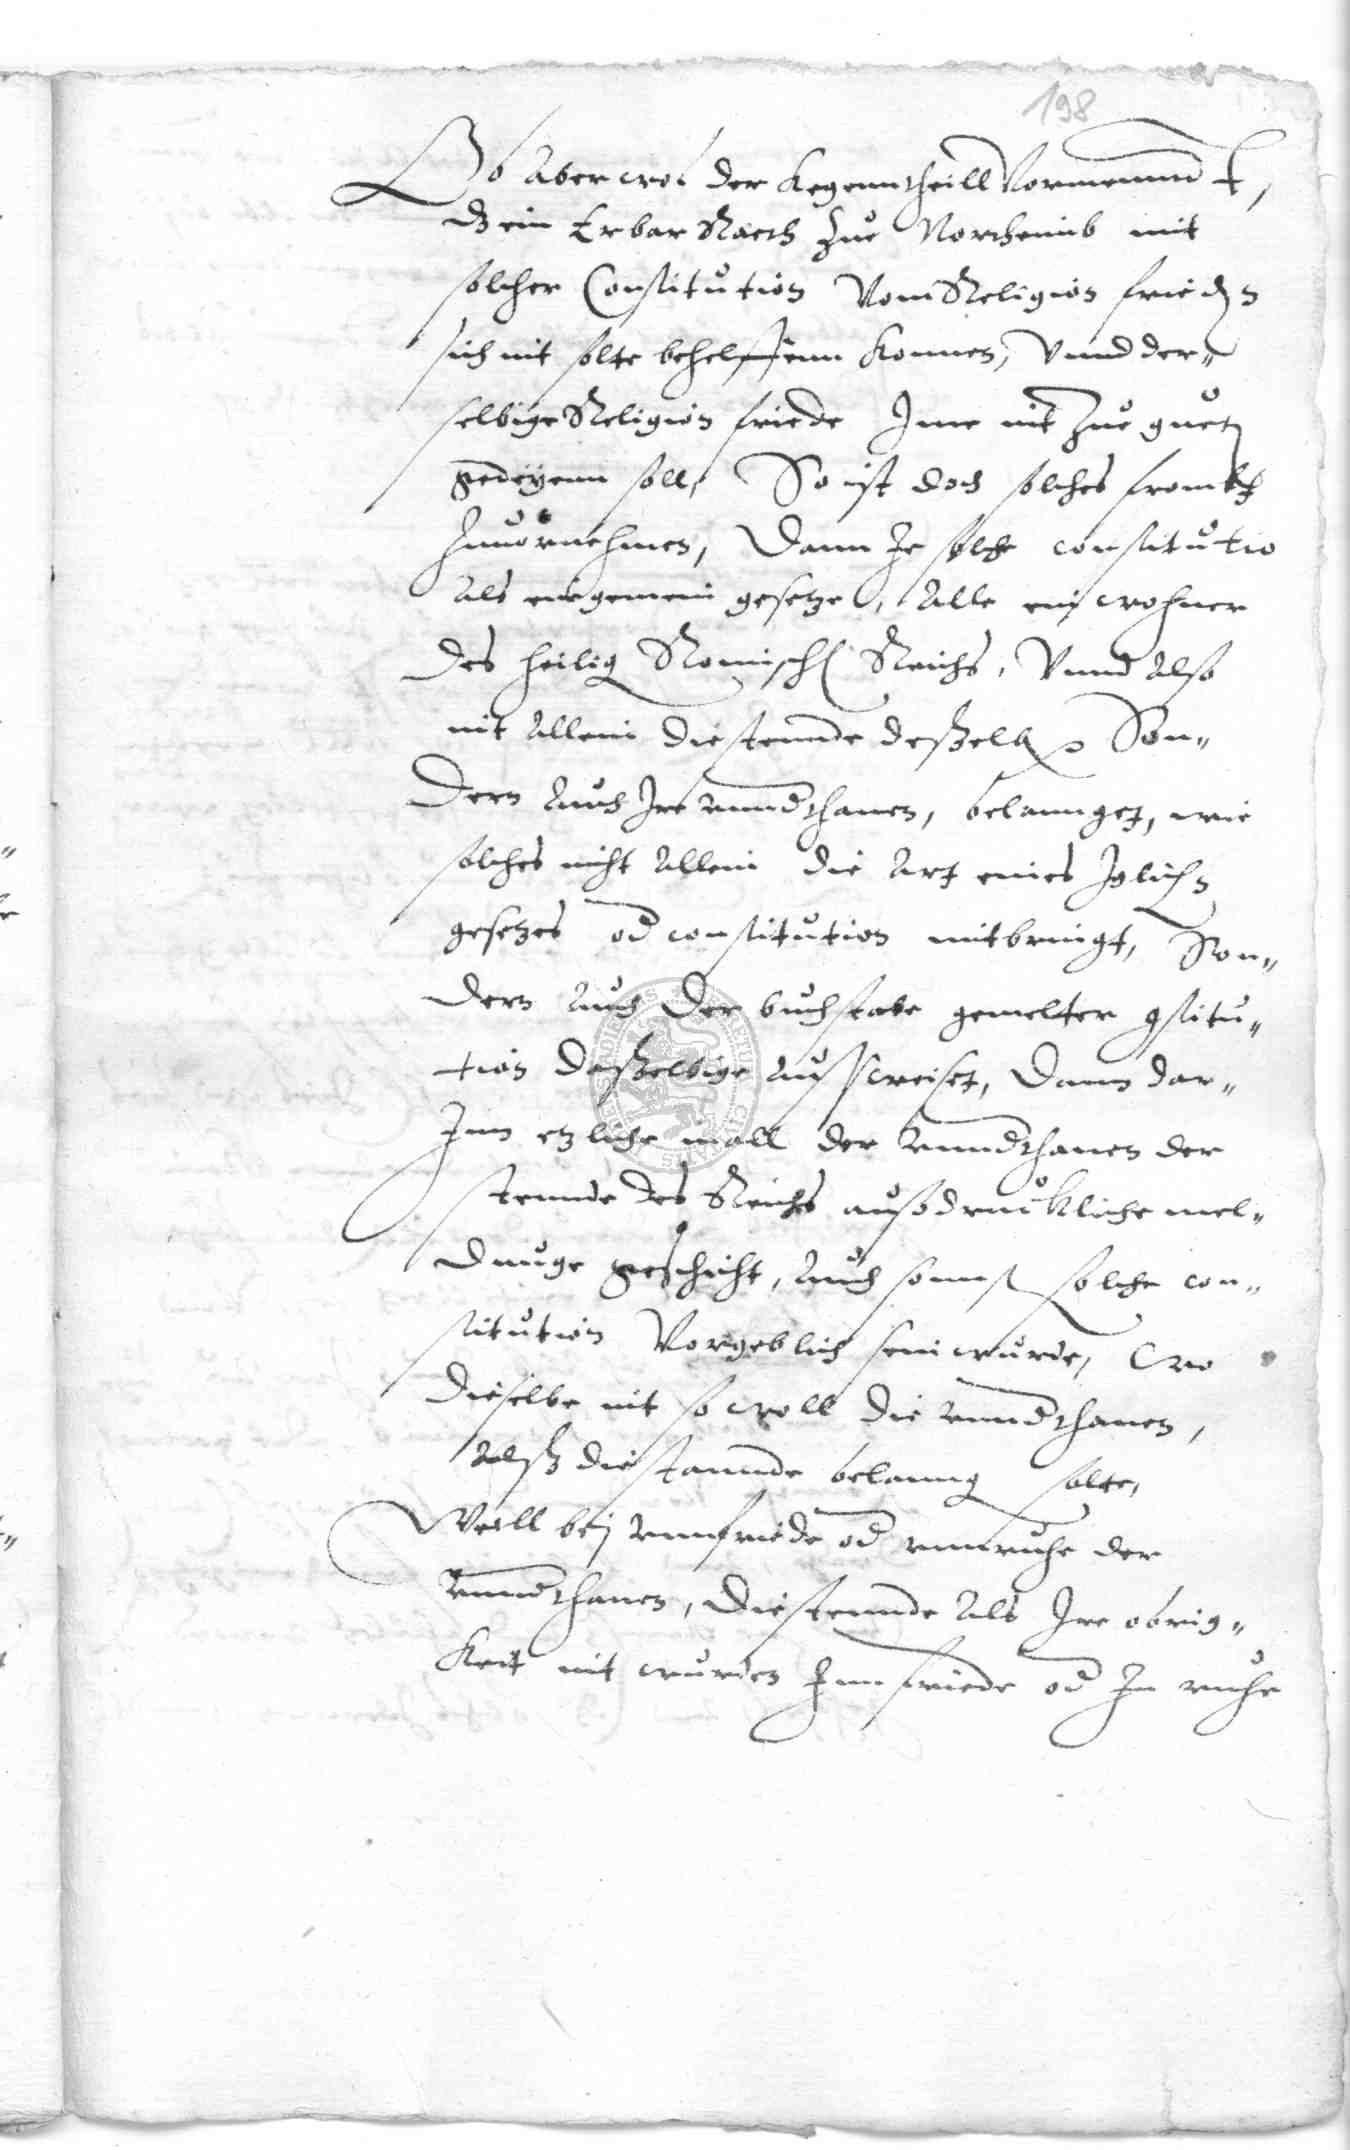 198
Ob aber wol der kegenntheill Vormeinndt,
dz ein Erbar Raeth zue Northeimb mit
solcher Constitution Vom Religion frieden
sich nit solte behelffenn konnen, Vnnd der„
selbige Religion friede Ime nit zue guet
gedeÿenn soll, So ist doch solches
zuuornehmen, Dann Je solche constitutio
als ein gemein gesetze, alle einwohner
des heilig Romisch Reichs, Vnnd also
nit allein die stennde deßelb Son„
dern auch Ire unndthanen, belannget, wie
solches nicht allein die art eines Iglichen
gesetzes od constitution mitbringt, Son„
dern auch der buchstabe gemelter constitu„
tion daßelbige außweiset, Dann dar„
Inn etzliche mall der unndthanen der
stennde des Reichs außdrucklliche mel„
dunge geschicht, auch sonnst solche con„
stitution Vorgeblich sein wurde, Wo
dieselbe nit so woll die unndthanen,
alß die stannde belanng solte,
Weill beÿ unnfriede od unnruhe der
unndthanen, die stennde als Ire obrig„
keit nit wurden Inn friede od In ruhe